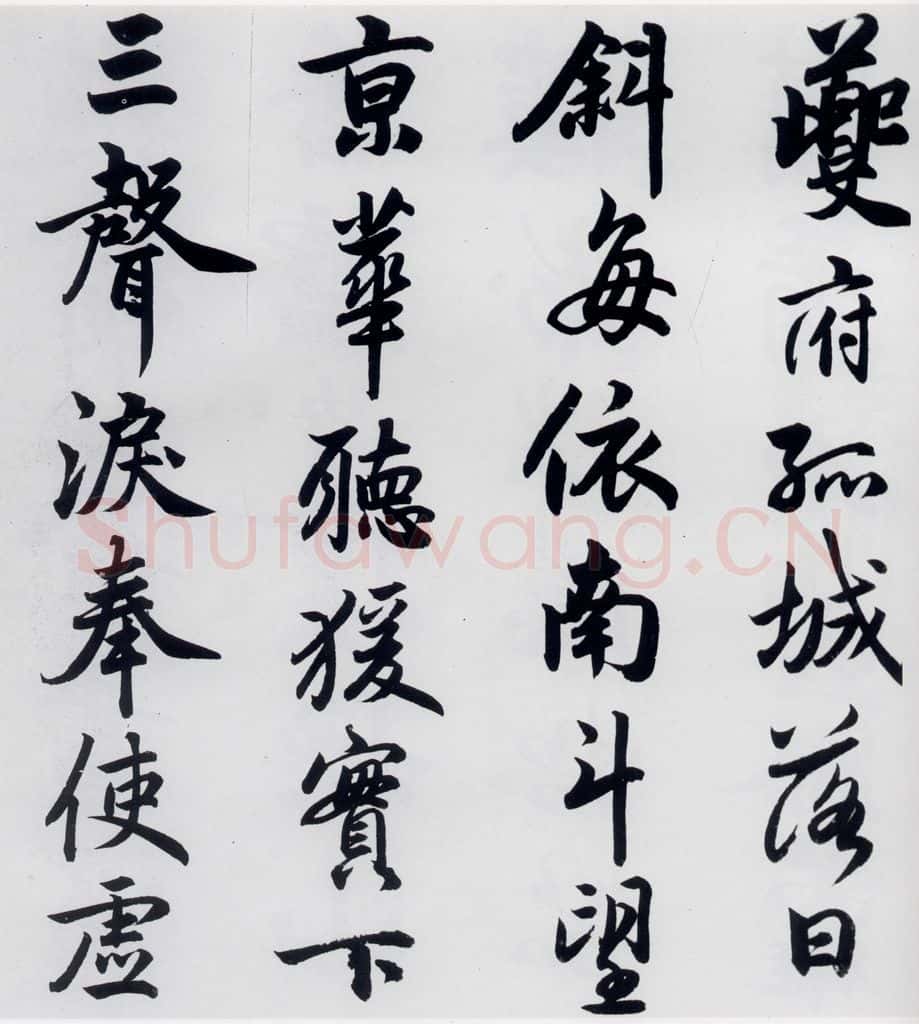 夔府孤城落日
斜每依南斗望
京華聽猨實下
三聲淚奉使虛
Shufawang.CN